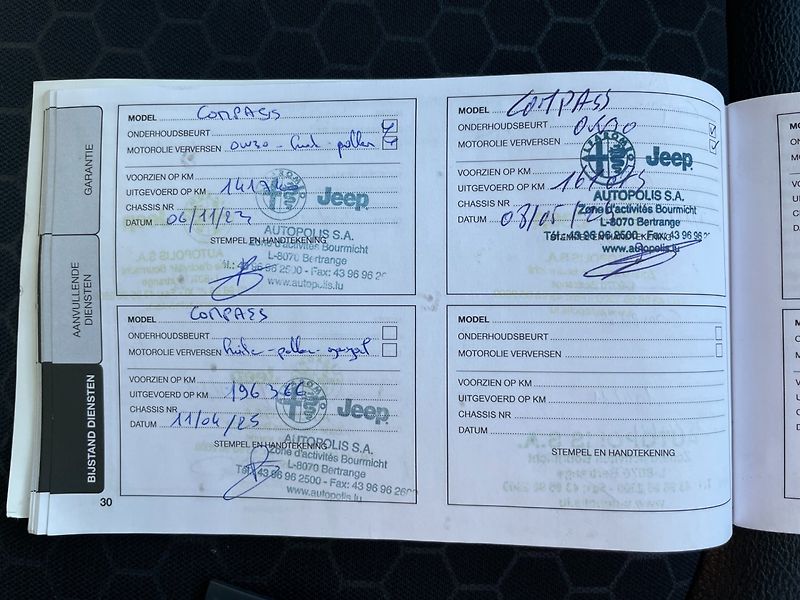 GARANTIE
AANVULLENDE
DIENSTEN
BIJSTAND DIENSTEN
MODEL COMPASS
ONDERHOUDSBEURT
MOTOROLIE VERVERSEN
VOORZIEN OP KM
UITGEVOERD OP KM
CHASSIS NR
DATUM 06/11/23
STEMPEL EN HANDTEKENING
Jeep
AUTOPOLIS S.A.
Zone d'activités Bourmicht
L-8070 Bertrange
Tél.: 43 96 96 2500 - Fax: 43 96 96 26
www.autopolis.lu
MODEL COMPASS
ONDERHOUDSBEURT
MOTOROLIE VERVERSEN
VOORZIEN OP KM
UITGEVOERD OP KM
CHASSIS NR
DATUM
STEMPEL EN HANDTEKENING
Jeep
AUTOPOLIS S.A.
Zone d'activités Bourmicht
L-8070 Bertrange
Tél.: 43 96 96 2500 - Fax: 43 96 96 26
www.autopolis.lu
MODEL COMPASS
ONDERHOUDSBEURT
MOTOROLIE VERVERSEN
VOORZIEN OP KM
UITGEVOERD OP KM 196366
CHASSIS NR
DATUM 11/04/25
STEMPEL EN HANDTEKENING
Jeep
AUTOPOLIS S.A.
Zone d'activités Bourmicht
L-8070 Bertrange
Tél.: 43 96 96 2500 - Fax: 43 96 96 26
www.autopolis.lu
MODEL
ONDERHOUDSBEURT
MOTOROLIE VERVERSEN
VOORZIEN OP KM
UITGEVOERD OP KM
CHASSIS NR
DATUM
STEMPEL EN HANDTEKENING
30